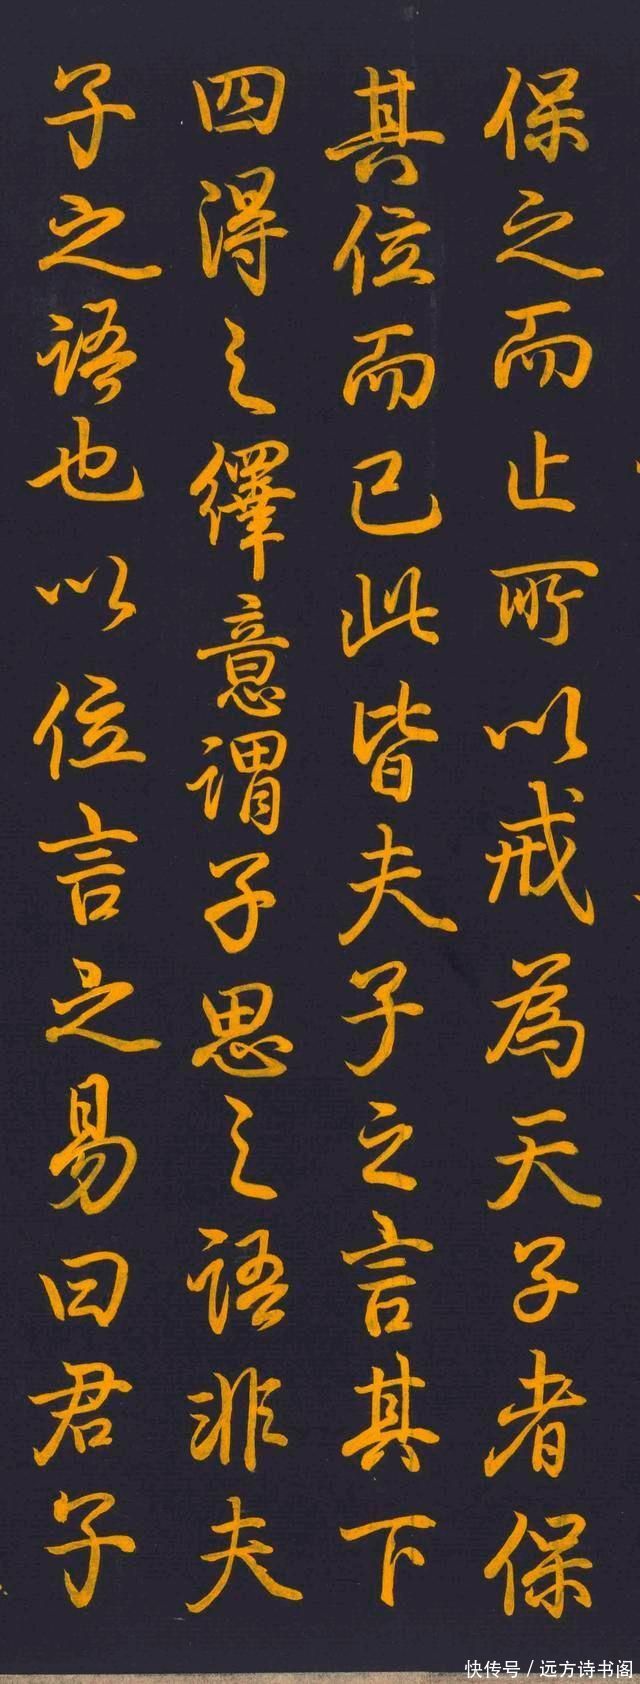 保之而止所以戒為天子者保
其位而已此皆夫子之言其下
四得之繹意謂子思之語非夫
子之語也以位言之易曰君子
快传号/远方诗书阁